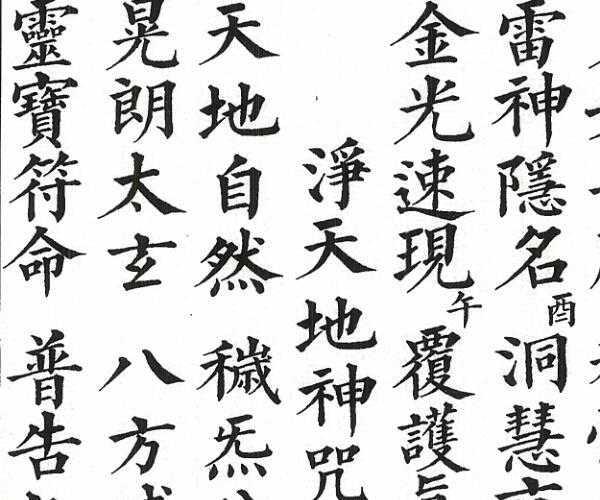 雷神隱名 酉 洞慧
金光速現 午 覆護
淨天地神咒
天地自然 穢炁
晃朗太玄 八方
靈寶符命 普告